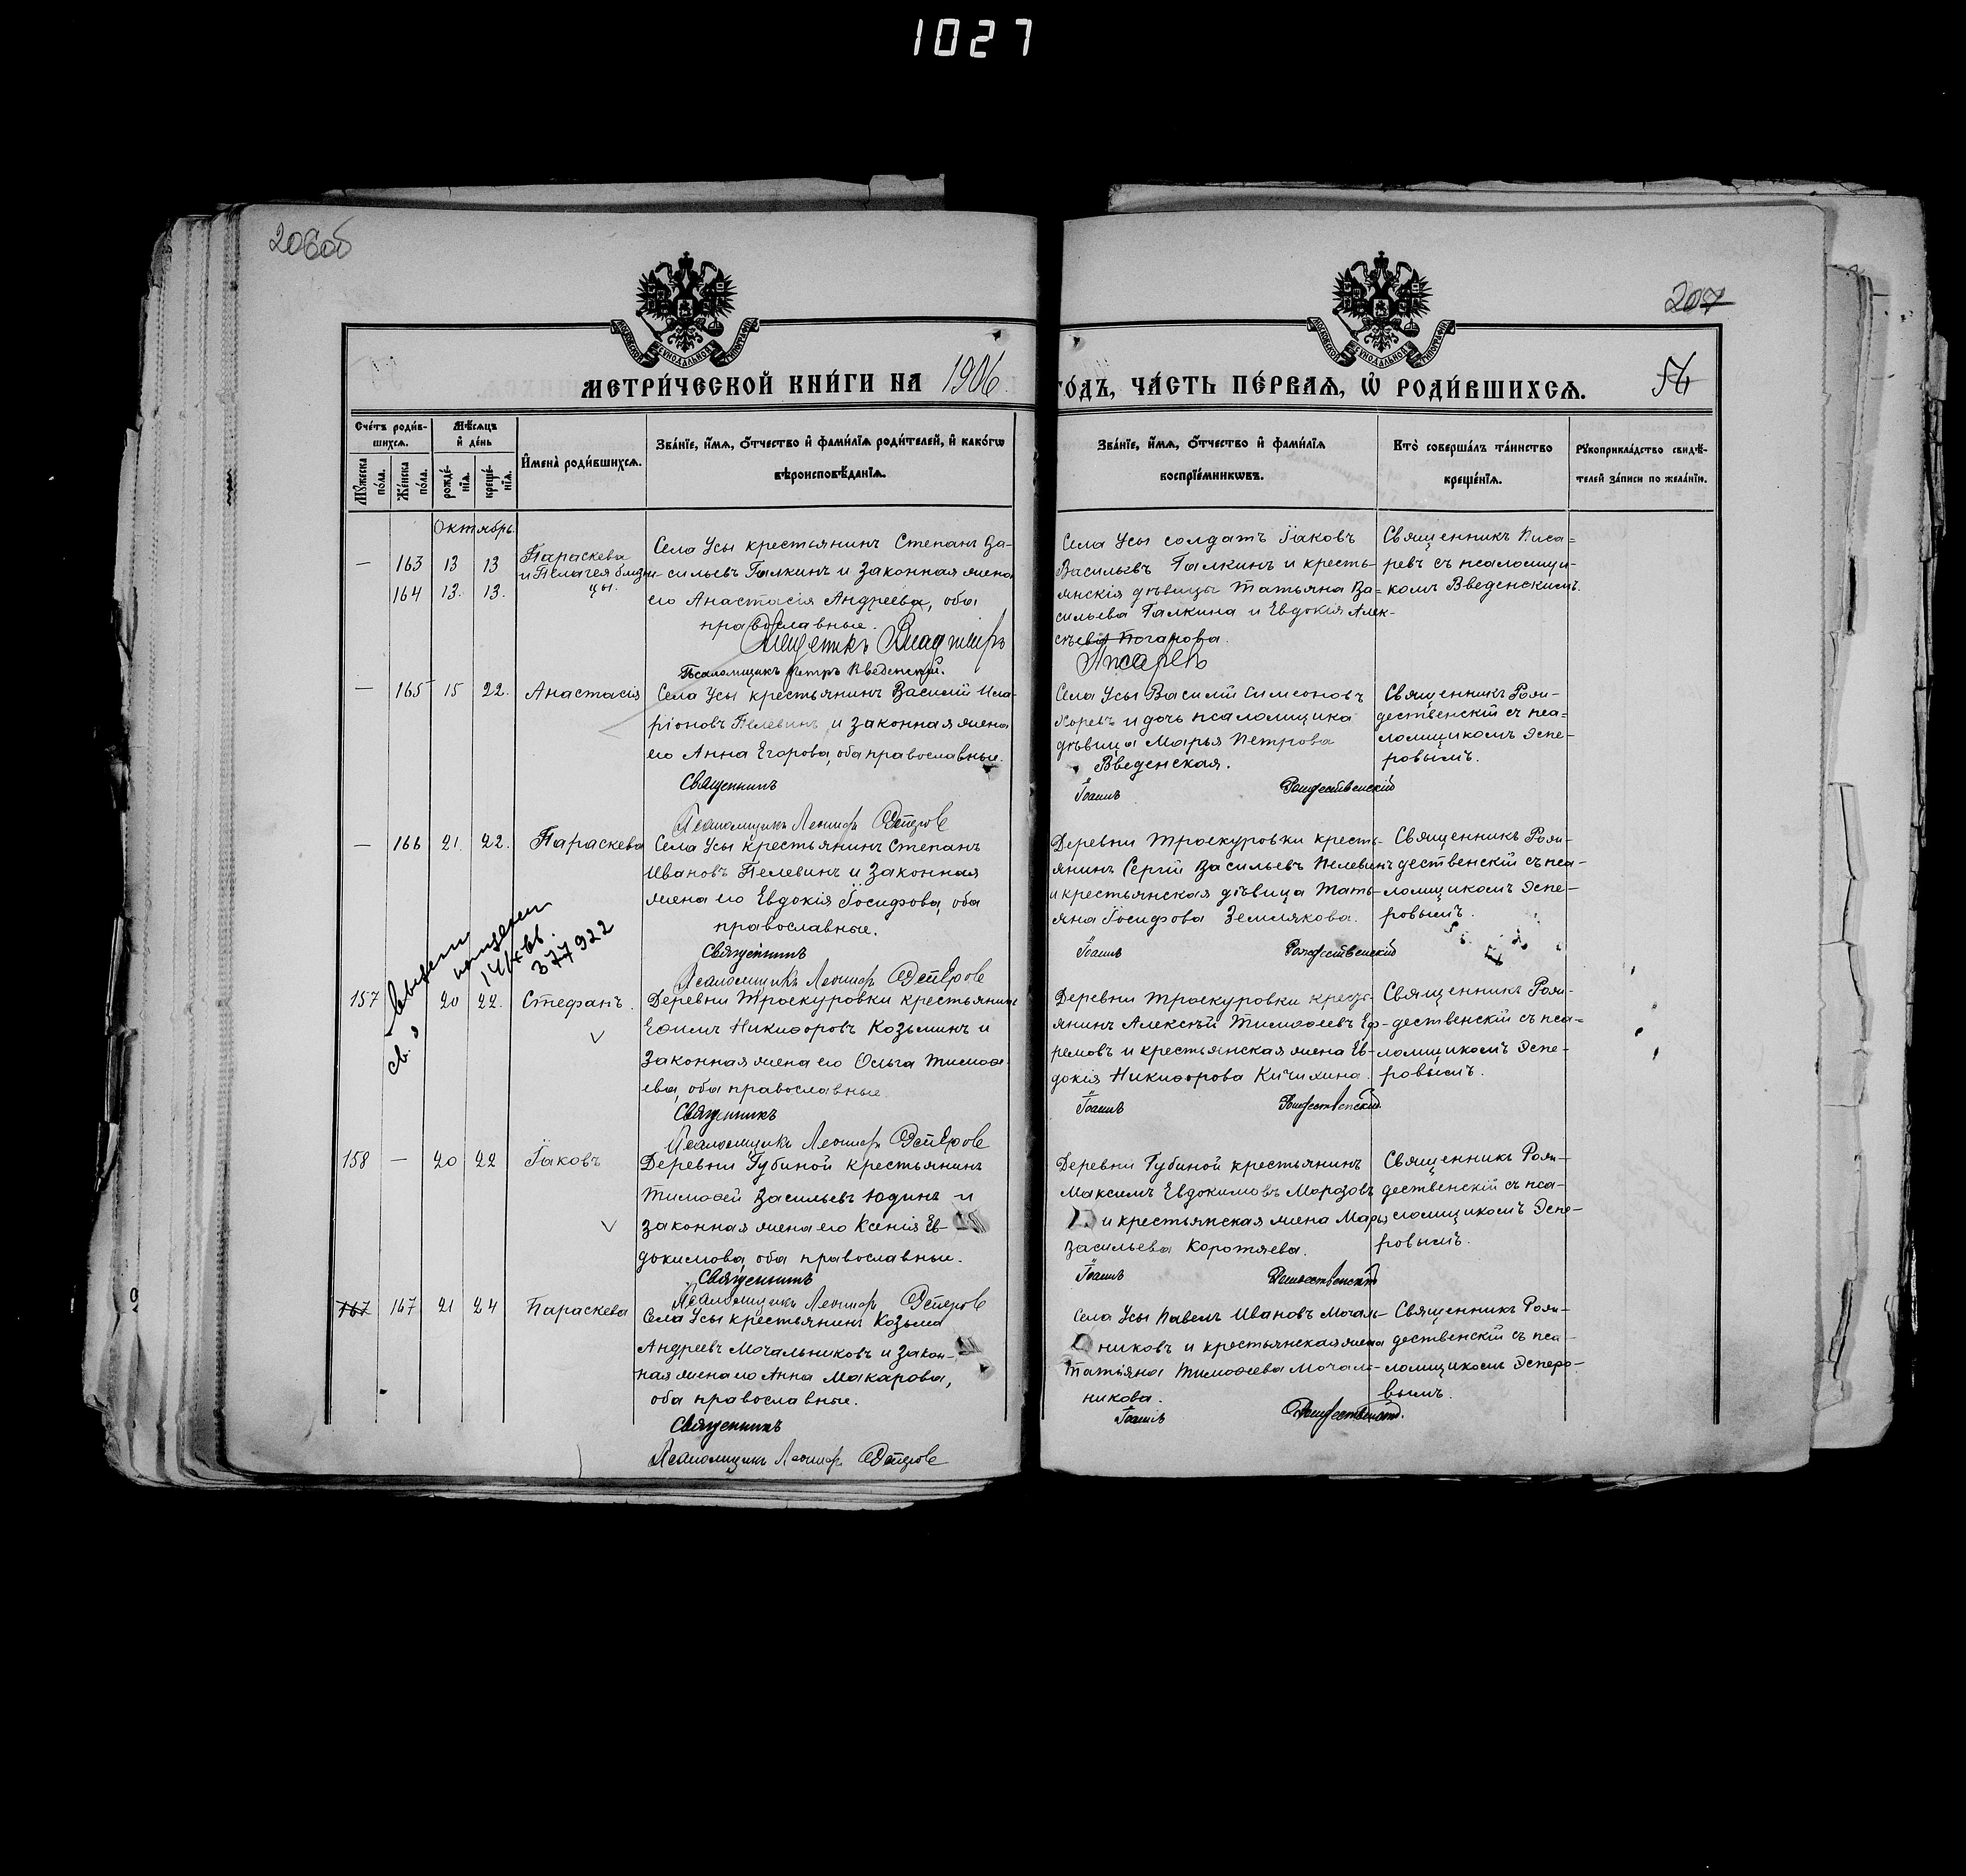 1027
206об
207
54
МЕТРИ́ЧЕСКОЙ КНИ́ГИ НА 1906 ГО́ДЪ, ЧА́СТЬ ПЕ́РВАѦ, Ѿ РОДИ́ВШИХСѦ.
Сче́тъ роди́в-
шихсѧ.
Мꙋжеска по́ла.
Же́нска по́ла.
Мѣ́сѧцъ
и҆ де́нь
рожде́-
нїѧ.
креще́-
нїѧ.
И҆мена̀ роди́вшихсѧ.
Зва́нїе, и҆́мѧ, ѻ҆́тчество и҆ фами́лїѧ роди́телей, и҆ како́гѡ
вѣроисповѣ́данїѧ.
Зва́нїе, и҆́мѧ, ѻ҆́тчество и҆ фами́лїѧ
воспрїе́мникѡвъ.
Кто̀ соверша́лъ та́инство
креще́нїѧ.
Рꙋкоприкла́дство свидѣ́-
телей за́писи по жела́нїю.
Октябрь.
— 163 13 13 Параскева
и Пелагея близне-
164 13. 13. цы.
Села Усы крестьянинъ Степанъ Ва-
сильевъ Галкинъ и законная жена
его Анастасія Андреева, оба
православные.
Священникъ Владиміръ
Псаломщикъ Петръ Введенскій.
Села Усы солдатъ Іаковъ
Васильевъ Галкинъ и кресть-
янскія дѣвицы Татьяна Ва=
сильева Галкина и Евдокія Алек-
сѣева Погарова.
Писаревъ
Священникъ Писа=
ревъ съ псаломщи-
комъ Введенскимъ.
— 165 15 22. Анастасія
Села Усы крестьянинъ Василій Ила-
ріоновъ Пелевинъ и законная жена
его Анна Егорова, оба православные.
Священникъ
Псаломщикъ
Села Усы Василій Симеоновъ
Хоревъ и дочь псаломщика
дѣвица Марья Петрова
Введенская.
Іоаннъ Рождественскій
Священникъ Рож-
дественскій съ пса=
ломщикомъ Эспе-
ровымъ.
— 166 21. 22. Параскева
Села Усы крестьянинъ Степанъ
Ивановъ Пелевинъ и законная
жена его Евдокія Іосифова, оба
православные.
Священникъ
Псаломщикъ
Деревни Троекуровки кресть-
янинъ Сергій Васильевъ Пелевинъ
и крестьянская дѣвица Тать-
яна Іосифова Землякова.
Іоаннъ Рождественскій
Священникъ Рож-
дественскій съ пса-
ломщикомъ Эспе-
ровымъ.
377922
157 20 22. Стефанъ.
Деревни Троекуровки крестьянинъ
Ефимъ Никифоровъ Козьминъ и
законная жена его Ольга Тимофе-
ева, оба православные.
Священникъ
Псаломщикъ
Деревни Троекуровки кресть-
янинъ Алексѣй Тимофеевъ Еф-
ремовъ и крестьянская жена Ев-
докія Никифорова Кичихина.
Іоаннъ Рождественскій
Священникъ Рож-
дественскій съ пса=
ломщикомъ Эспе-
ровымъ.
158 — 20 22 Іаковъ
Деревни Губиной крестьянинъ
Тимофей Васильевъ Юдинъ и
законная жена его Ксенія Ев-
докимова, оба православные.
Священникъ
Псаломщикъ
Деревни Губиной крестьянинъ
Максимъ Евдокимовъ Морозовъ
и крестьянская жена Марья
Васильева Коротяева.
Іоаннъ Рождественскій
Священникъ Рож-
дественскій съ пса-
ломщикомъ Эспе-
ровымъ.
167 167 21 24 Параскева
Села Усы крестьянинъ Козьма
Андреевъ Мочальниковъ и закон-
ная жена его Анна Макарова,
оба православные.
Священникъ
Псаломщикъ
Села Усы Павелъ Ивановъ Мочаль-
никовъ и крестьянская жена
Татьяна Тимофеева Мочаль-
никова.
Іоаннъ Рождественскій.
Священникъ Рож-
дественскій съ пса-
ломщикомъ Эсперо-
вымъ.